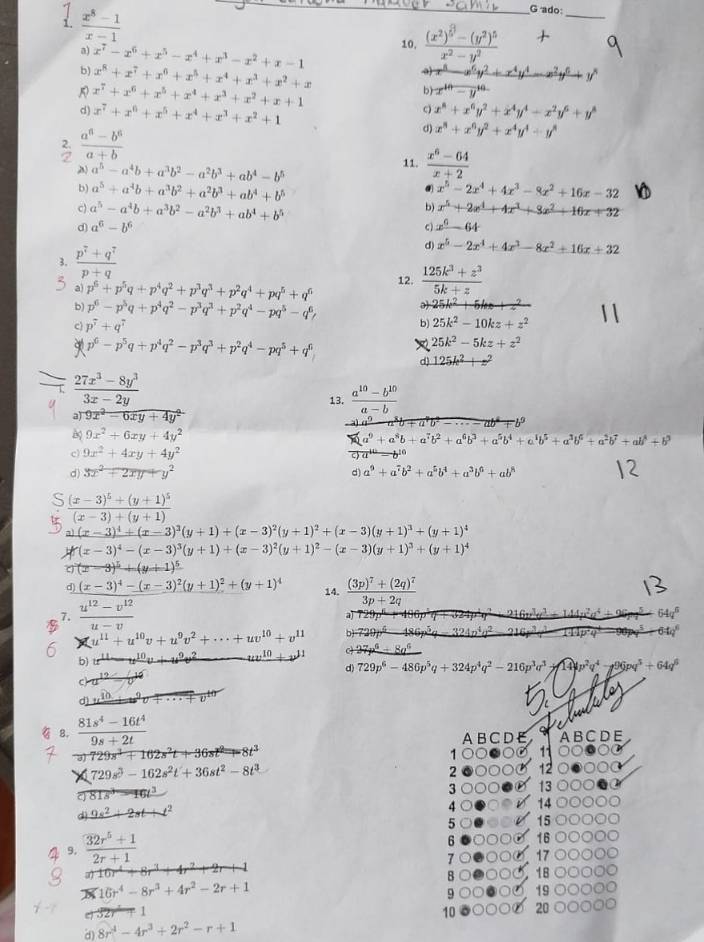 G ado:
1. \frac{x^8 - 1}{x - 1}
a) x^7 - x^6 + x^5 - x^4 + x^3 - x^2 + x - 1
b) x^8 + x^7 + x^6 + x^5 + x^4 + x^3 + x^2 + x
x^7 + x^6 + x^5 + x^4 + x^3 + x^2 + x + 1
d) x^7 + x^6 + x^5 + x^4 + x^3 + x^2 + 1
2. \frac{a^6 - b^6}{a + b}
2
a) a^5 - a^4b + a^3b^2 - a^2b^3 + ab^4 - b^5
b) a^5 + a^4b + a^3b^2 + a^2b^3 + ab^4 + b^5
c) a^5 - a^4b + a^3b^2 - a^2b^3 + ab^4 + b^5
d) a^6 - b^6
3. \frac{p^7 + q^7}{p + q}
3
a) p^6 + p^5q + p^4q^2 + p^3q^3 + p^2q^4 + pq^5 + q^6
b) p^6 - p^5q + p^4q^2 - p^3q^3 + p^2q^4 - pq^5 - q^6
c) p^7 + q^7
p^6 - p^5q + p^4q^2 - p^3q^3 + p^2q^4 - pq^5 + q^6
\frac{27x^3 - 8y^3}{3x - 2y}
a) 9x^2 - 6xy + 4y^2
9x^2 + 6xy + 4y^2
c) 9x^2 + 4xy + 4y^2
d) 3x^2 + 2xy + y^2
5 \frac{(x - 3)^5 + (y + 1)^5}{(x - 3) + (y + 1)}
a) (x - 3)^4 + (x - 3)^3(y + 1) + (x - 3)^2(y + 1)^2 + (x - 3)(y + 1)^3 + (y + 1)^4
(x - 3)^4 - (x - 3)^3(y + 1) + (x - 3)^2(y + 1)^2 - (x - 3)(y + 1)^3 + (y + 1)^4
c) (x - 3)^5 + (y + 1)^5
d) (x - 3)^4 - (x - 3)^2(y + 1)^2 + (y + 1)^4
7. \frac{u^{12} - v^{12}}{u - v}
6
u^{11} + u^{10}v + u^9v^2 + ⋯ + uv^{10} + v^{11}
b) u^{11} - u^{10}v + u^9v^2 uv^{10} + v^{11}
c) u^{12} - v^{12}
d) u^{10} + u^9v + ⋯ + v^{10}
8. \frac{81s^4 - 16t^4}{9s + 2t}
7
a) 729s^3 + 162s^2t + 36st^2 + 8t^3
729s^3 - 162s^2t + 36st^2 - 8t^3
c) 81s^3 - 16t^3
d) 9s^2 + 2st + t^2
9. \frac{32r^5 + 1}{2r + 1}
8
a) 16r^4 + 8r^3 + 4r^2 + 2r + 1
16r^4 - 8r^3 + 4r^2 - 2r + 1
c) 32r^5 + 1
d) 8r^4 - 4r^3 + 2r^2 - r + 1
10. \frac{(x^2)^5 - (y^2)^5}{x^2 - y^2}
9
a) x^8 - x^6y^2 + x^4y^4 - x^2y^6 + y^8
b) x^{10} - y^{10}
c) x^8 + x^6y^2 + x^4y^4 + x^2y^6 + y^8
d) x^8 + x^6y^2 + x^4y^4 + y^8
11. \frac{x^6 - 64}{x + 2}
10
x^5 - 2x^4 + 4x^3 - 8x^2 + 16x - 32
b) x^5 + 2x^4 + 4x^3 + 8x^2 + 16x + 32
c) x^6 - 64
d) x^5 - 2x^4 + 4x^3 - 8x^2 + 16x + 32
12. \frac{125k^3 + z^3}{5k + z}
11
a) 25k^2 + 5kz + z^2
b) 25k^2 - 10kz + z^2
25k^2 - 5kz + z^2
d) 125k^2 + z^2
13. \frac{a^{10} - b^{10}}{a - b}
a) a^9 - a^8b + a^7b^2 - ⋯ - ab^8 + b^9
a^9 + a^8b + a^7b^2 + a^6b^3 + a^5b^4 + a^4b^5 + a^3b^6 + a^2b^7 + ab^8 + b^9
c) a^{10} - b^{10}
d) a^9 + a^7b^2 + a^5b^4 + a^3b^6 + ab^8
12
14. \frac{(3p)^7 + (2q)^7}{3p + 2q}
13
a) 729p^6 + 486p^5q + 324p^4q^2 + 216p^3q^3 + 144p^2q^4 + 96pq^5 + 64q^6
b) 729p^6 - 486p^5q - 324p^4q^2 - 216p^3q^3 - 144p^2q^4 - 96pq^5 - 64q^6
c) 27p^6 + 8q^6
d) 729p^6 - 486p^5q + 324p^4q^2 - 216p^3q^3 + 144p^2q^4 - 96pq^5 + 64q^6
5.0
A B C D E A B C D E
1 11
2 12
3 13
4 14
5 15
6 16
7 17
8 18
9 19
10 20